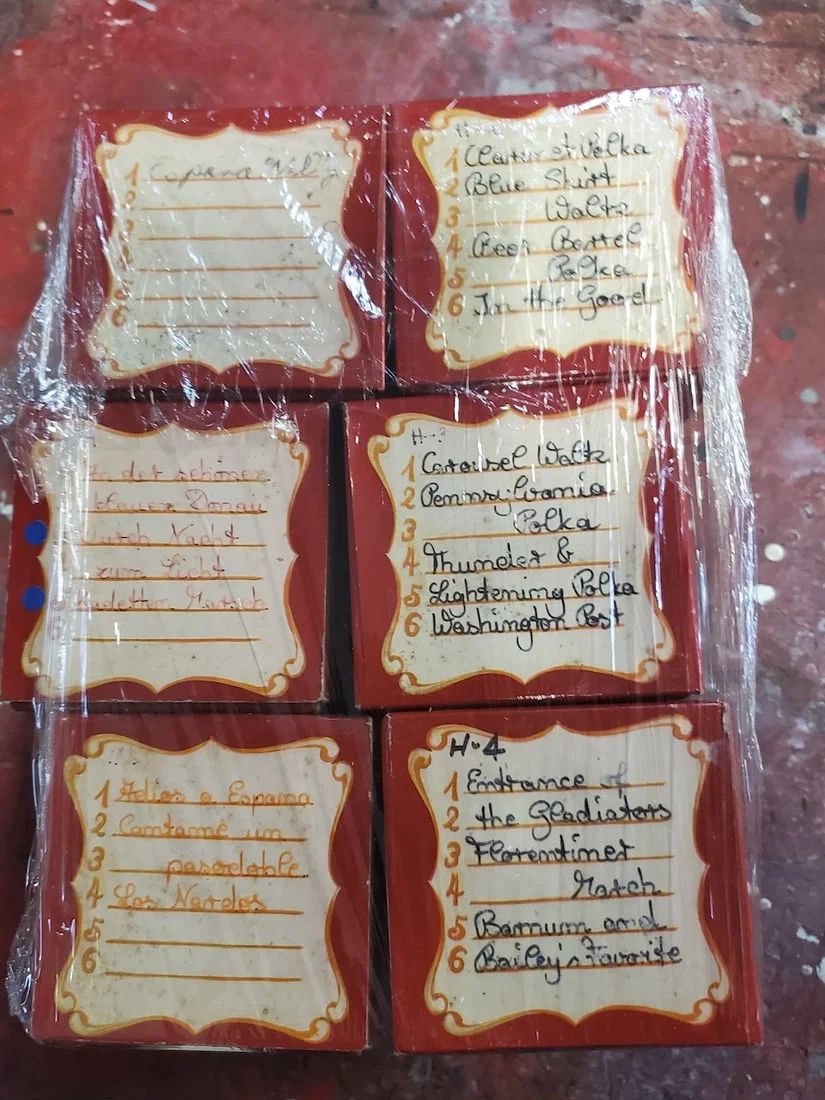 1 España
2
3
4
5
6
1 Clarinet Polka
2 Blue Skirt
3 Waltz
4 Beer Barrel
5 Polka
6 In the Good
schönen
blauen Donau
Durch Nacht
zum Licht
Sudetten Marsch
H-3
1 Carousel Waltz
2 Pennsylvania
3 Polka
4 Thunder &
5 Lightening Polka
6 Washington Post
1 Adios a Espana
2 Cantame un
3 pasodoble
4 Los Nardos
5
6
H-4
1 Entrance of
2 the Gladiators
3 Florentiner
4 March
5 Barnum and
6 Bailey's Favorite